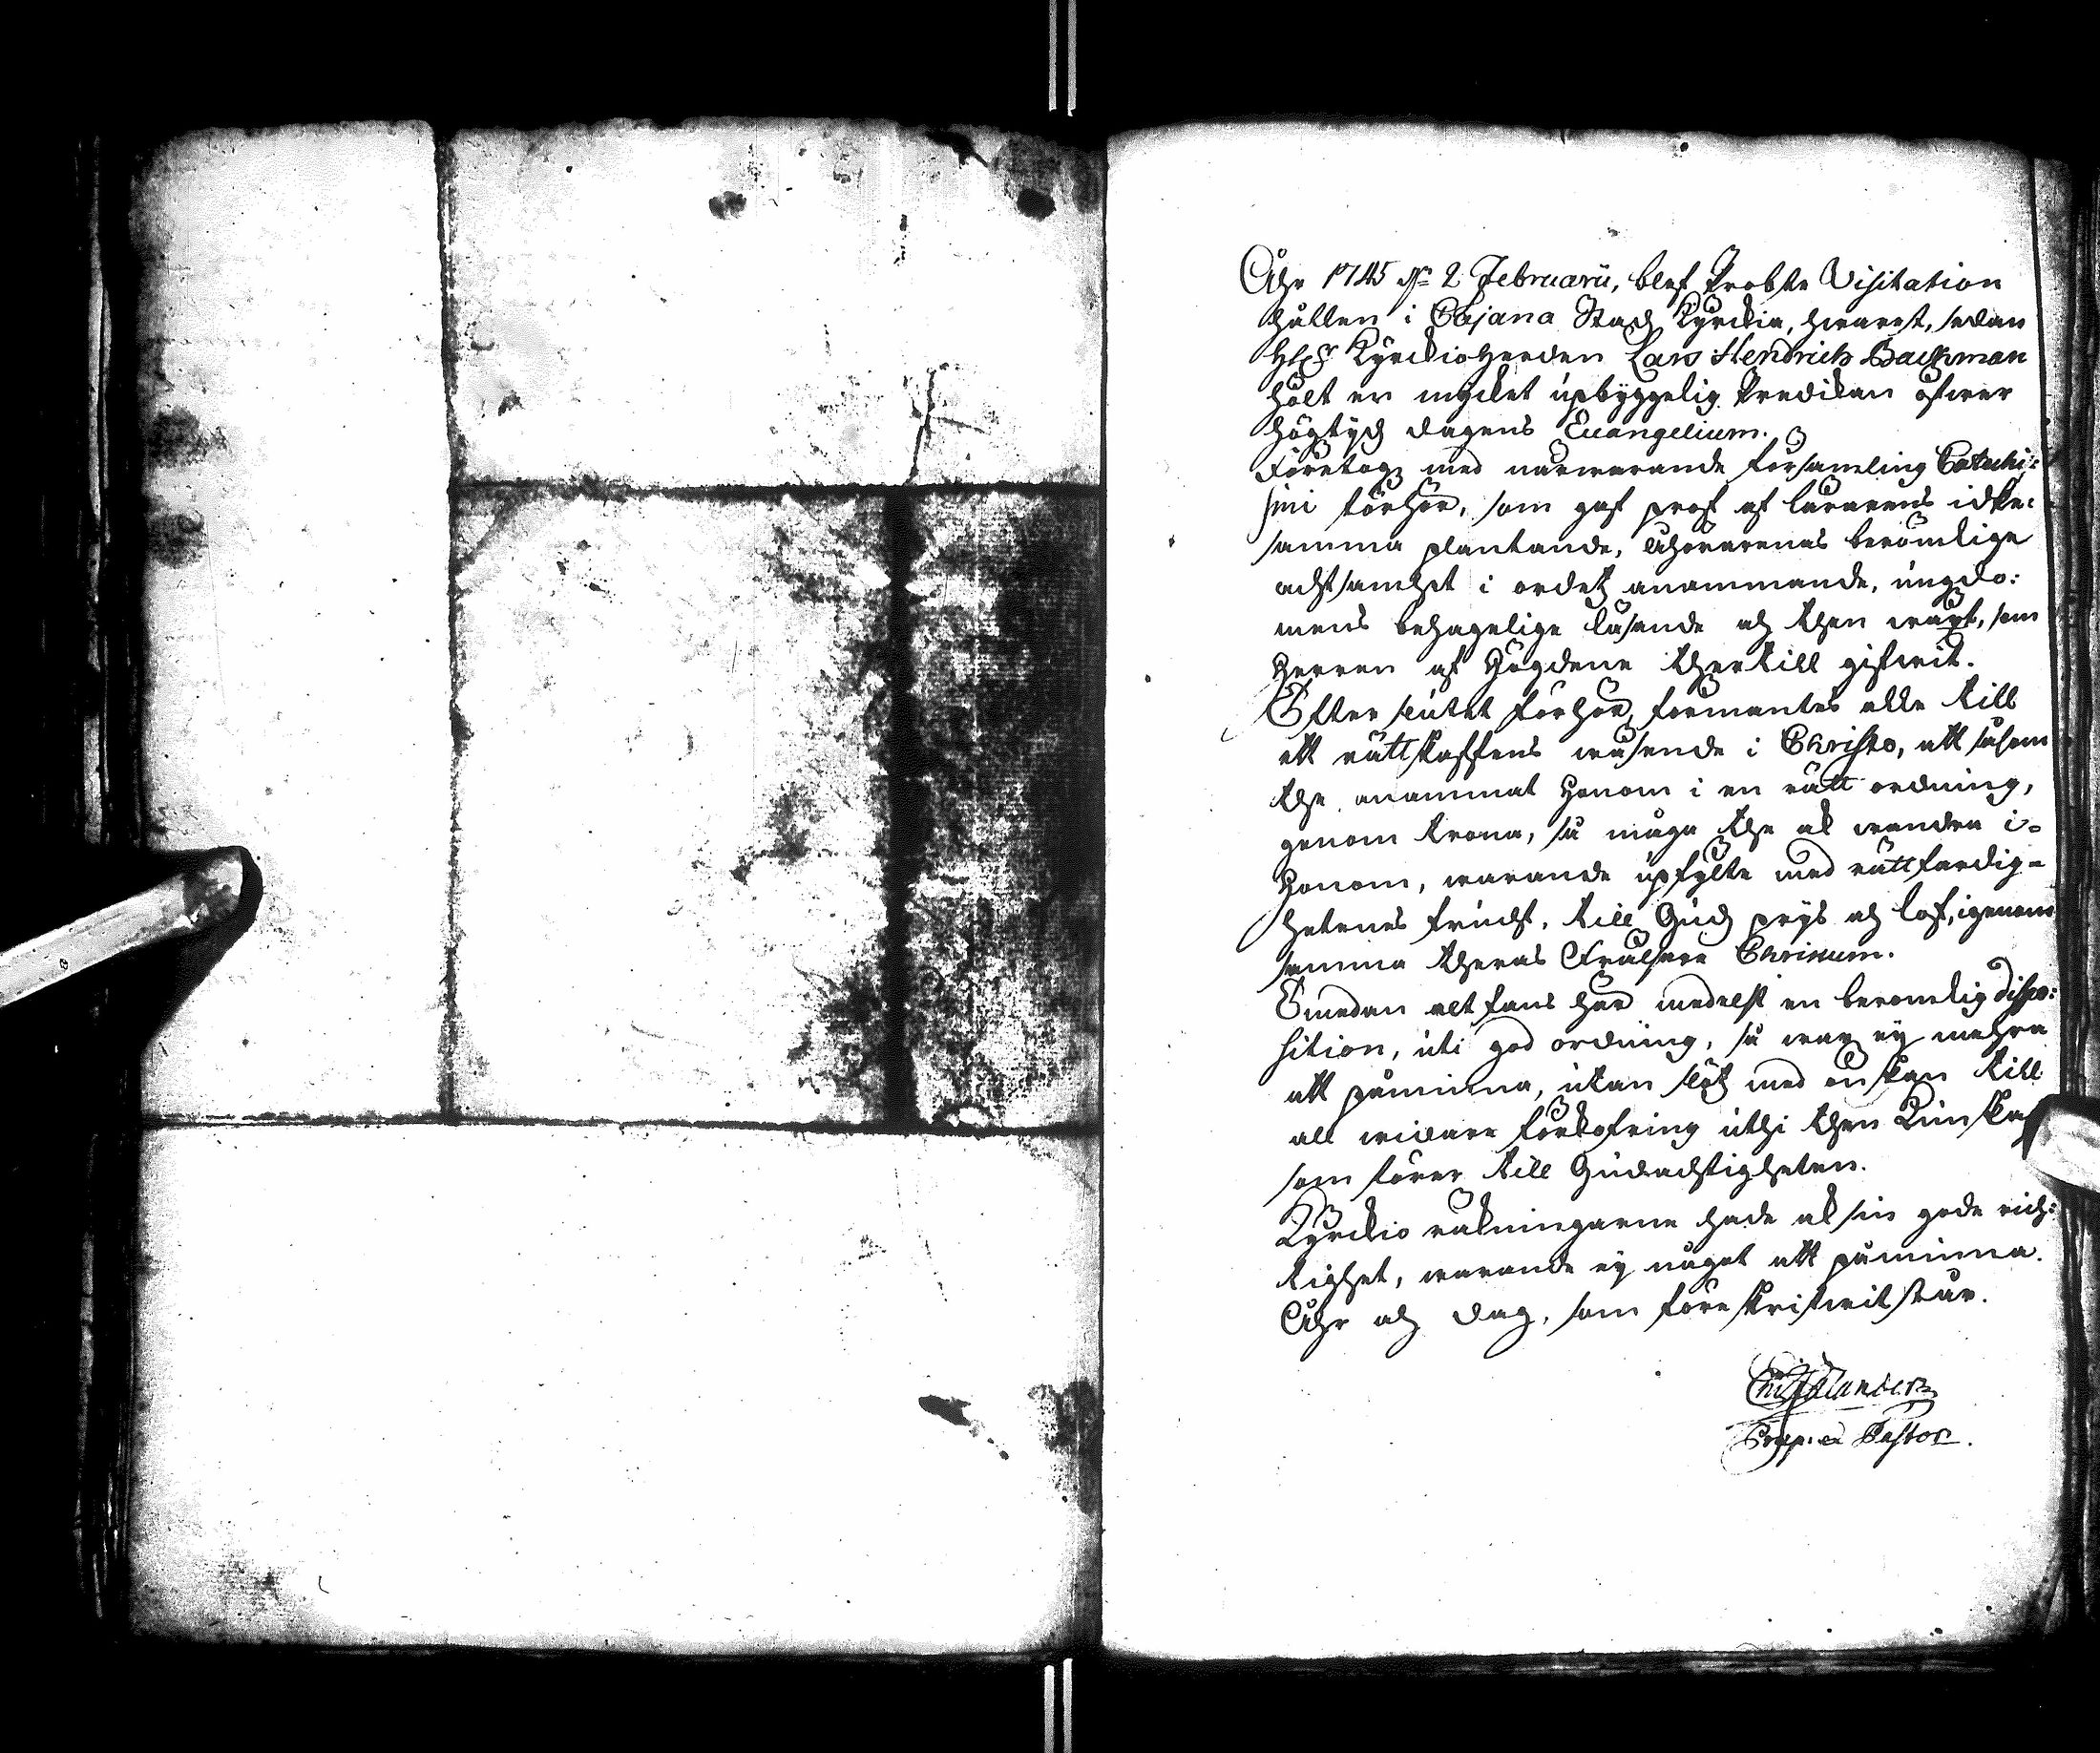 Åhr 1745 dn 2 Februarii, blef Probste Visitation
hållen i Cajana Stadz Kyrckia, hwarest, sedan
Kyrckioherden Lars Hendrich Bachman
hölt en mycket upbyggelig Predikan öfwer
högtydz dagens Euangelium.
Företogz med närwarande församling Catechi:
smi förhör, som gaf prof af lärarens idke:
samma plantande, åhörarenas berömlige
achtsamhet i ordetz anammande, ungdo:
mens behagelige läsande och then wäxt, som
Herren af Högdene thertill gifwit.
Efter slutet förhör, förmantes alle till
ett rättskaffens wäsende i Christo, att såsom
the anammat Honom i en rätt ordning,
genom trona, så måga the ok wandra i
Honom, warande upfylte med rättfärdig-
hetenes frucht, till Gudz prys och lof, igenom
samma theras Frälsare Christum.
Emedan alt fans här medelst en berömelig dispo:
sition, uti god ordning, så war ey mehra
att påminna, utan slötz med önskan till
all widare förkofring uthi then Kunskap
som förer till Gudachtigheten.
Kyrckio räkningarne hade ok sin gode rich:
tighet, warande ey något att påminna.
Åhr och dag, som föreskrifwit står.
Præp. et Pastor.